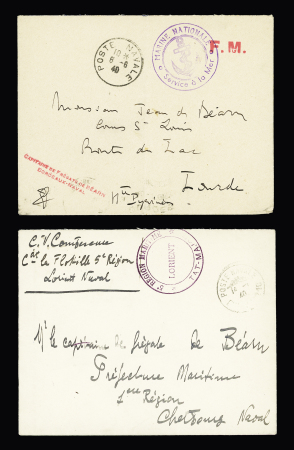 POSTE NAVALE
10
6-6
40
MARINE NATIONALE
Service à la Mer
F.M.
Monsieur Jean de Béarn
Cours St Louis
Route de
Lourde
Htes Pyrénées
CAPITAINE DE FRÉGATE DE BÉARN
BORDEAUX-NAVAL
C.V.
de la Flottille 5e Région
Lorient Naval
5e RÉGION MARITIME
LORIENT
ETAT-MAJOR
POSTE
Mr le capitaine de frégate de Béarn
Préfecture Maritime
1ere Région
Cherbourg Naval